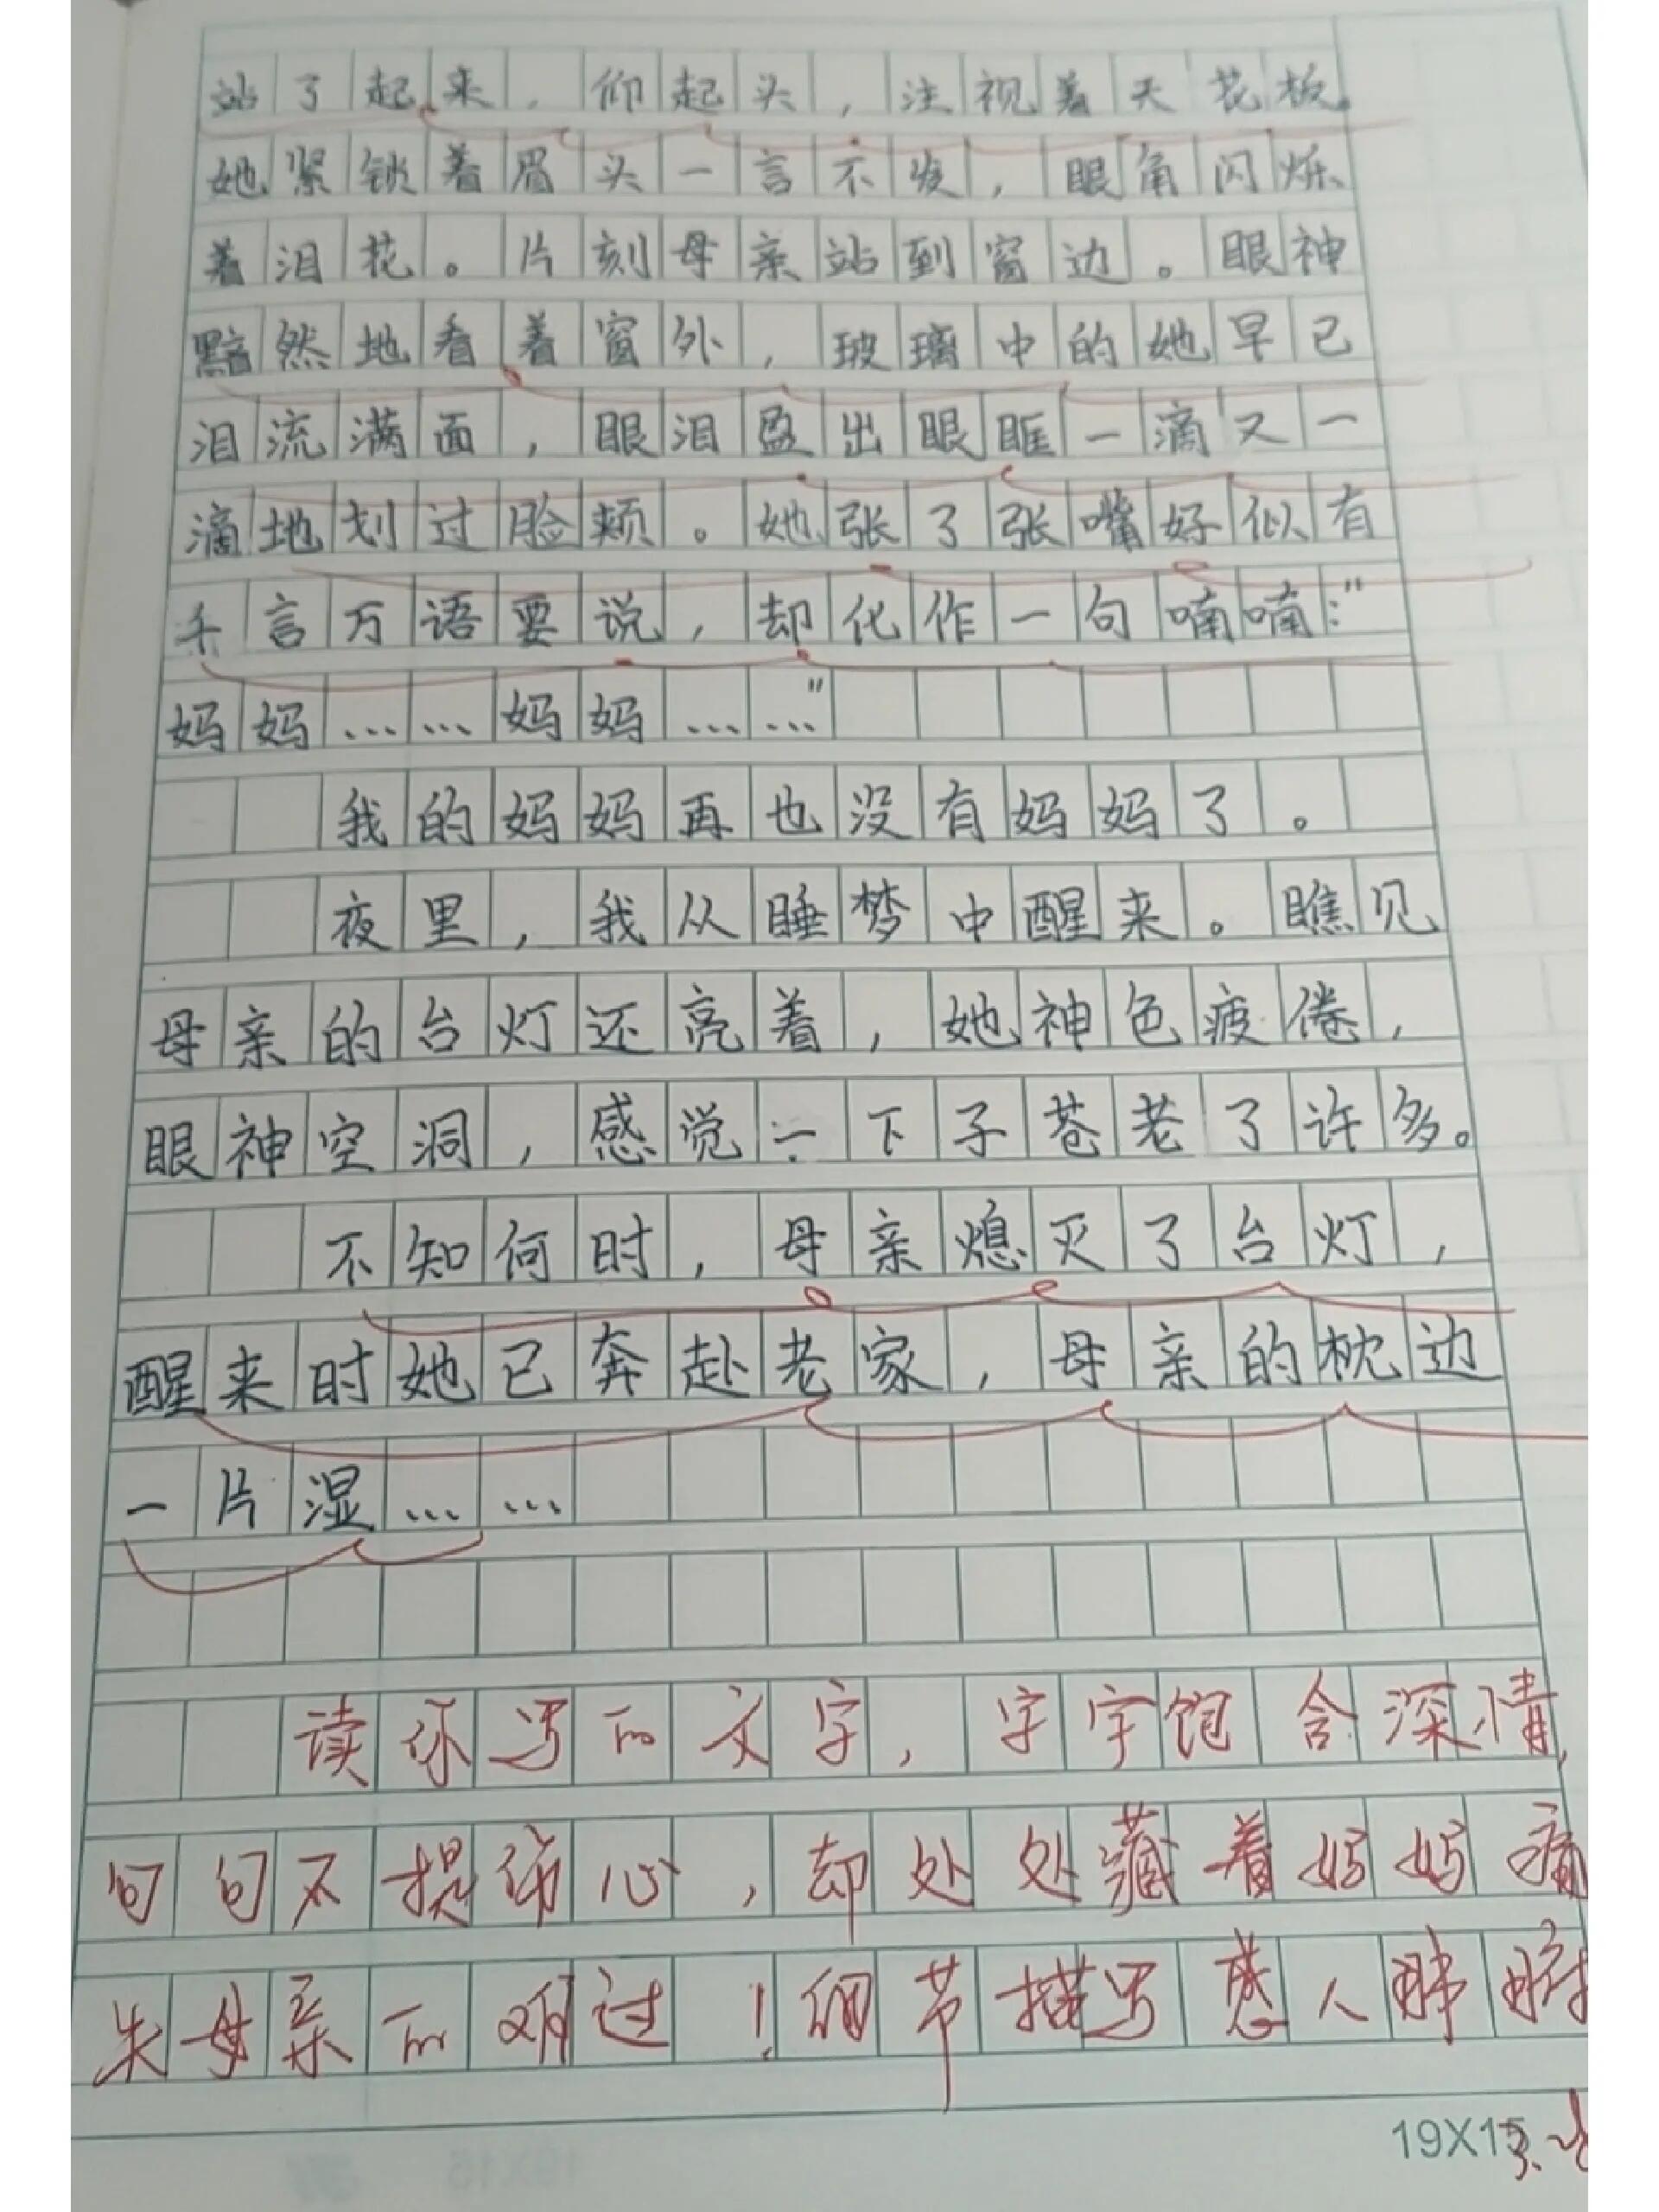 站了起来，仰起头，注视着天花板。
她紧锁着眉头一言不发，眼角闪烁
着泪花。片刻母亲站到窗边。眼神
黯然地看着窗外，玻璃中的她早已
泪流满面，眼泪盈出眼眶一滴又一
滴地划过脸颊。她张了张嘴好似有
千言万语要说，却化作一句喃喃："
妈妈……妈妈……"
我的妈妈再也没有妈妈了。
夜里，我从睡梦中醒来。瞧见
母亲的台灯还亮着，她神色疲倦，
眼神空洞，感觉一下子苍老了许多。
不知何时，母亲熄灭了台灯，
醒来时她已奔赴老家，母亲的枕边
一片湿……
读你写的文字，字字饱含深情，
句句不提伤心，却处处藏着妈妈痛
失母亲的难过！细节描写感人肺腑
19X15